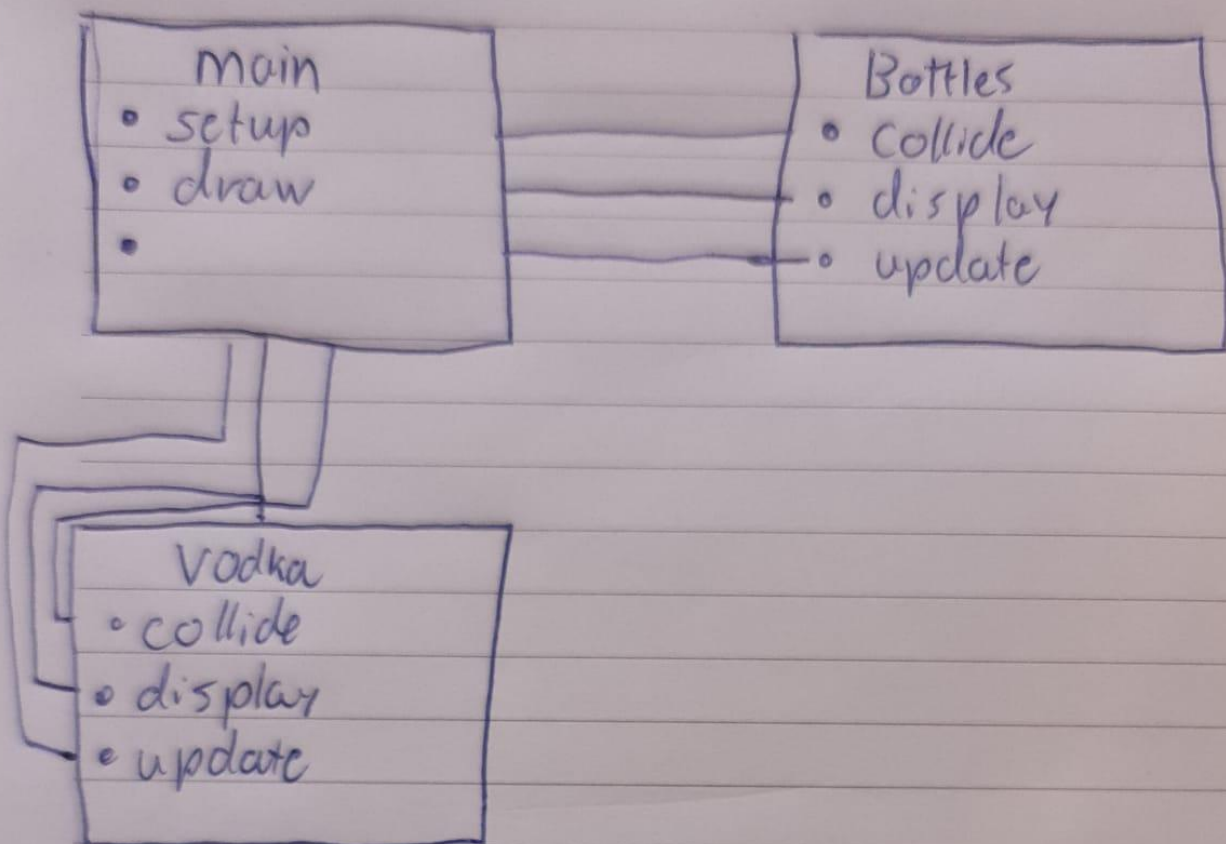 main
• setup
• draw
•
Bottles
• collide
• display
• update
Vodka
• collide
• display
• update